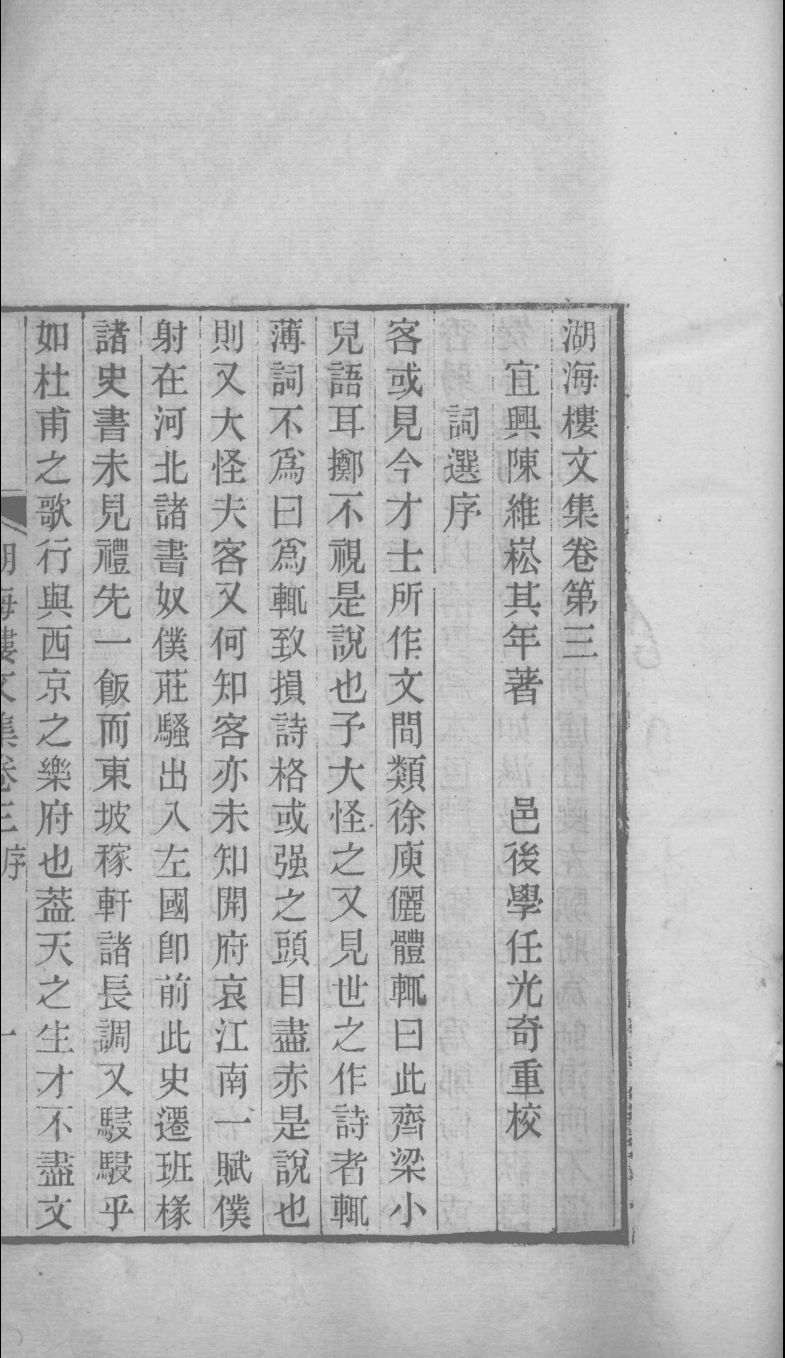 湖海樓文集卷第三
宜興陳維崧其年著　邑後學任光奇重校
詞選序
客或見今才士所作文間類徐庾儷體輒曰此齊梁小
兒語耳擲不視是說也予大怪之又見世之作詩者輒
薄詞不爲曰爲輒致損詩格或强之頭目盡赤是說也
則又大怪夫客又何知客亦未知開府哀江南一賦僕
射在河北諸書奴僕莊騷出入左國卽前此史遷班椽
諸史書未見禮先一飯而東坡稼軒諸長調又駸駸乎
如杜甫之歌行與西京之樂府也葢天之生才不盡文
湖海樓文集卷三序　一